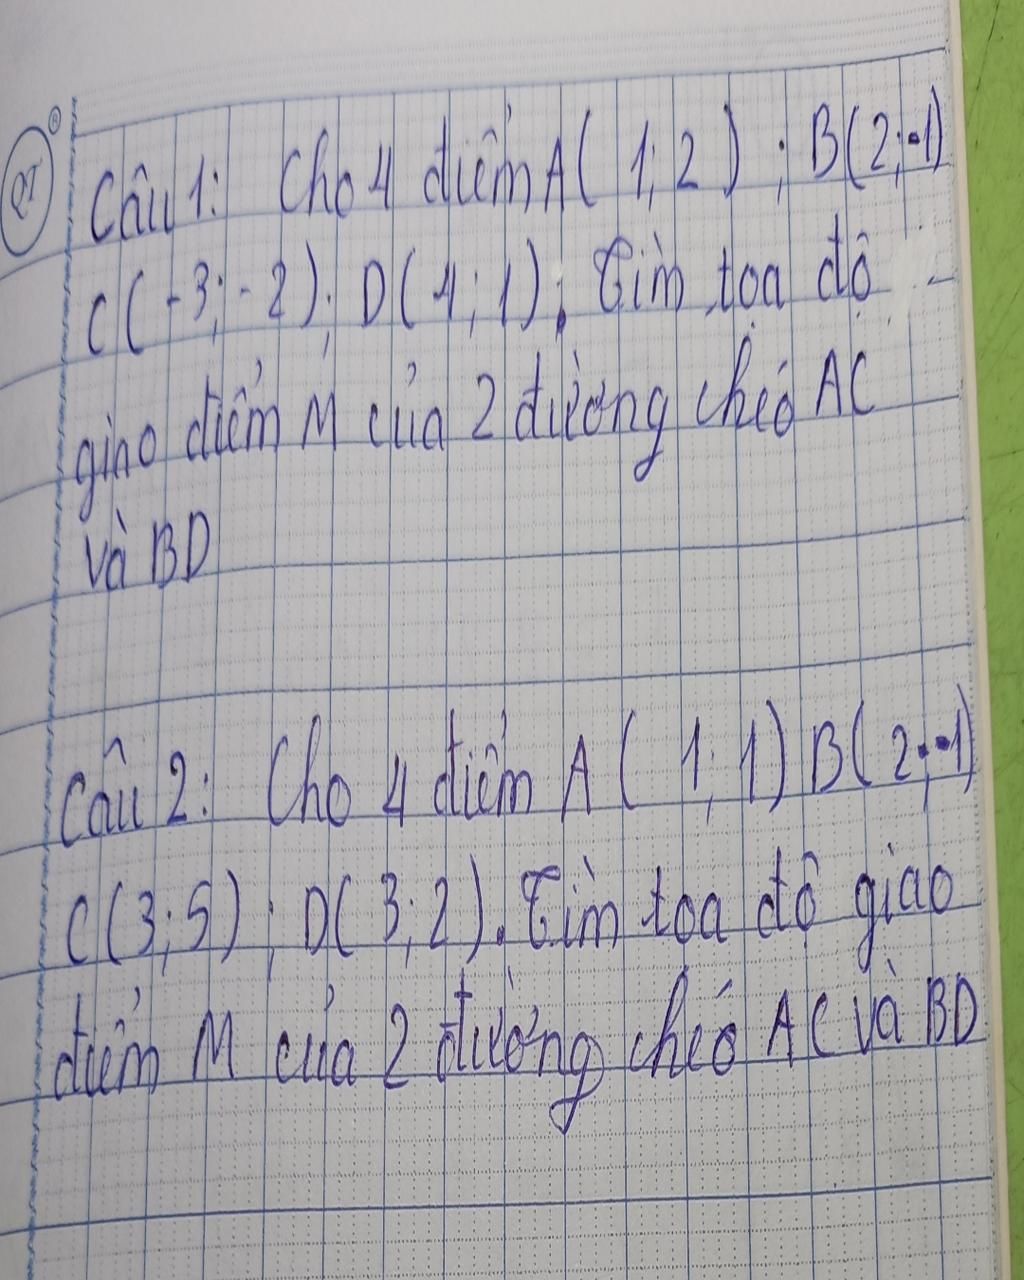 QT
Câu 1: Cho 4 điểm A( 1; 2 ) ; B(2; -1)
C( -3; -2); D( 4; 1); Tìm toạ độ
giao điểm M của 2 đường chéo AC
và BD
Câu 2: Cho 4 điểm A ( 1; 1) B( 2; -1)
C(3; 5) ; D( 3; 2). Tìm toạ độ giao
điểm M của 2 đường chéo AC và BD